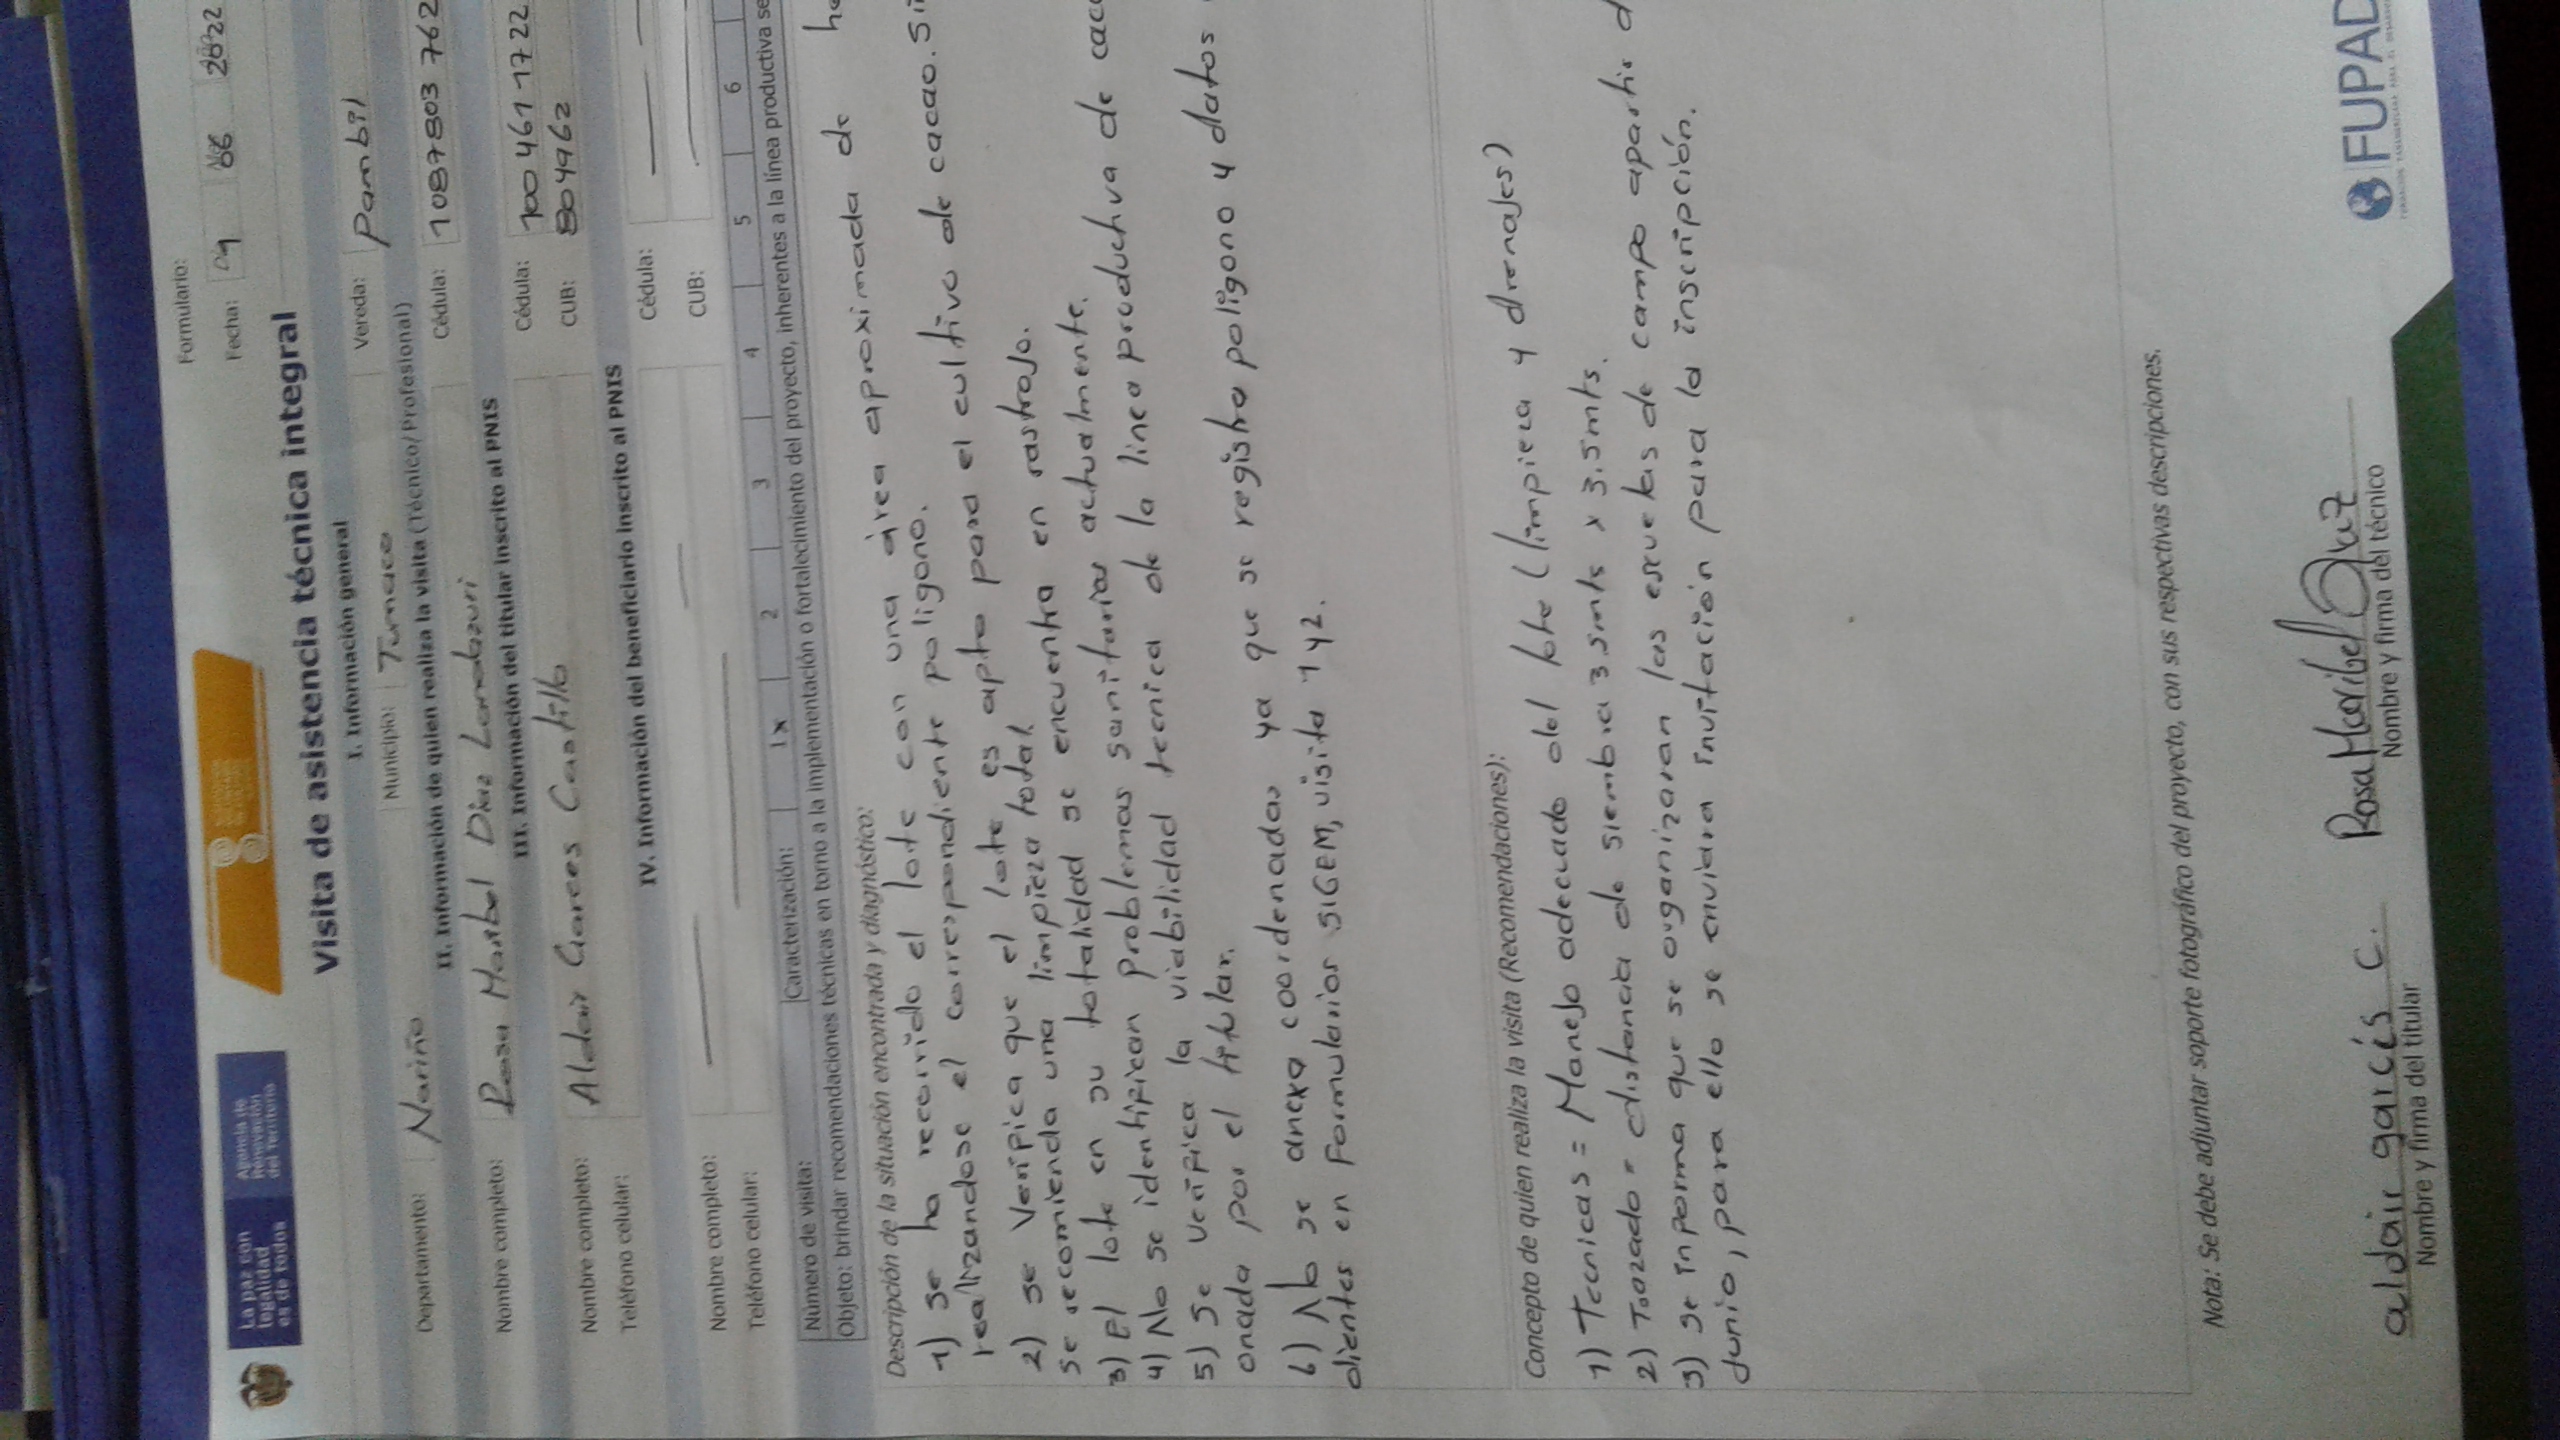 La paz con
legalidad
es de todos
Agencia de
Renovación
del Territorio
Formulario:
Fecha: 09 06 2022
Visita de asistencia técnica integral
I. Información general
Departamento: Nariño Municipio: Tumaco Vereda: Pambil
II. Información de quien realiza la visita (Técnico/Profesional)
Nombre completo: Rosa Maribel Diaz Landazuri Cédula: 1087803762
III. Información del titular inscrito al PNIS
Nombre completo: Aldair Garces Castillo Cédula: 1004611722
Teléfono celular: CUB: 804962
IV. Información del beneficiario inscrito al PNIS
Nombre completo: Cédula:
Teléfono celular: CUB:
Número de visita: Caracterización: 1 x 2 3 4 5 6
Objeto: brindar recomendaciones técnicas en torno a la implementación o fortalecimiento del proyecto, inherentes a la línea productiva se
Descripción de la situación encontrada y diagnóstico:
1) se ha recorrido el lote con una área aproximada de
realizandose el correspondiente poligono.
2) se verifica que el lote es apto para el cultivo de cacao. sin
se recomienda una limpieza total.
3) El lote en su totalidad se encuentra en rastrojo.
4) No se identifican problemas sanitarios actualmente.
5) Se verifica la viabilidad tecnica de la linea productiva de caca
onada por el titular.
6) No se anexa coordenadas ya que se registra poligono y datos
dientes en formularios SIGEM, visita 1 y 2.
Concepto de quien realiza la visita (Recomendaciones):
1) Tecnicas = Manejo adecuado del lote (limpieza y drenajes)
2) Trazado = distancia de siembra 3.5mts x 3.5mts.
3) se informa que se organizaran las escuelas de campo apartir d
Junio, para ello se enviara invitación para la inscripción.
Nota: Se debe adjuntar soporte fotográfico del proyecto, con sus respectivas descripciones.
aldair garcés C. Rosa Maribel Diaz
Nombre y firma del titular Nombre y firma del técnico
FUPAD